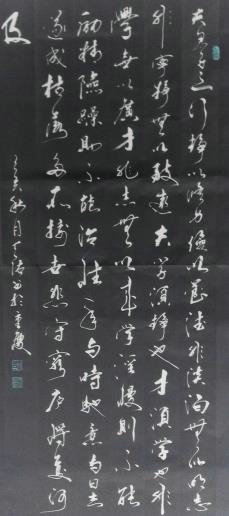 夫君子之行静以修身俭以养德非澹泊无以明志
非宁静无以致远夫学须静也才须学也非
学无以广才非志无以成学淫慢则不能
励精险躁则不能治性年与时驰意与日去
遂成枯落多不接世悲守穷庐将复何
及